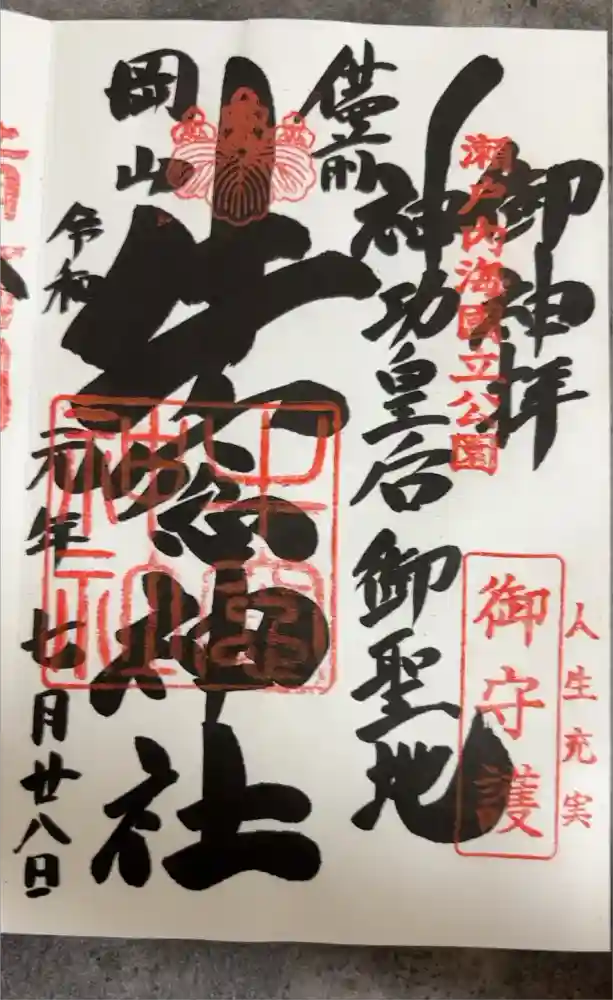 御神拝
瀬戸内海國立公園
人生充実
御守護
備前
神功皇后御聖地
牛窓神社
牛窓神社
岡山
令和元年七月廿八日